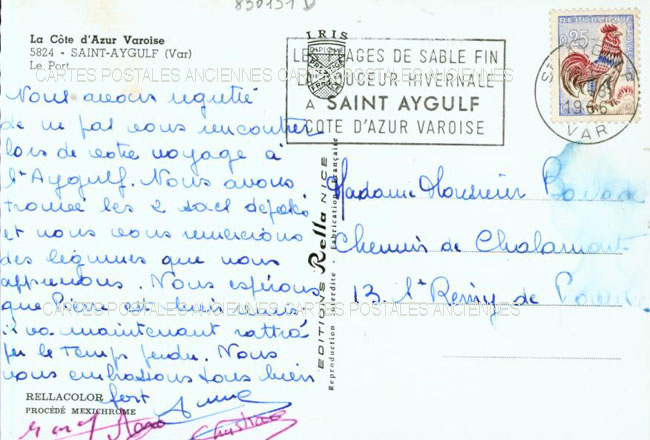 830151 D
La Côte d'Azur Varoise
5824 - SAINT-AYGULF (Var)
Le Port
CARTES POSTALES ANCIENNES CARTES POSTALES ANCIENNES CARTES POSTALES ANCIENNES
Nous avons regretté
de ne pas vous rencontrer
lors de votre voyage à
St Aygulf. Nous avons
trouvé les 2 sacs déposés
et nous vous remercions
des légumes que nous
apprenons. Nous espérons
que Pierre est bien
il va maintenant rattra
per le temps perdu. Nous
vous embrassons tous bien
fort Anne
Christiane
IRIS
LES PLAGES DE SABLE FIN
LA DOUCEUR HIVERNALE
A SAINT AYGULF
COTE D'AZUR VAROISE
0,25
VAR
Madame Monsieur
Chemin de Chalamont
13. St Remy de
EDITIONS Rella NICE
Reproduction interdite - Fabrication Française
RELLACOLOR
PROCÉDÉ MEXICHROME
CARTES POSTALES ANCIENNES CARTES POSTALES ANCIENNES CARTES POSTALES ANCIENNES